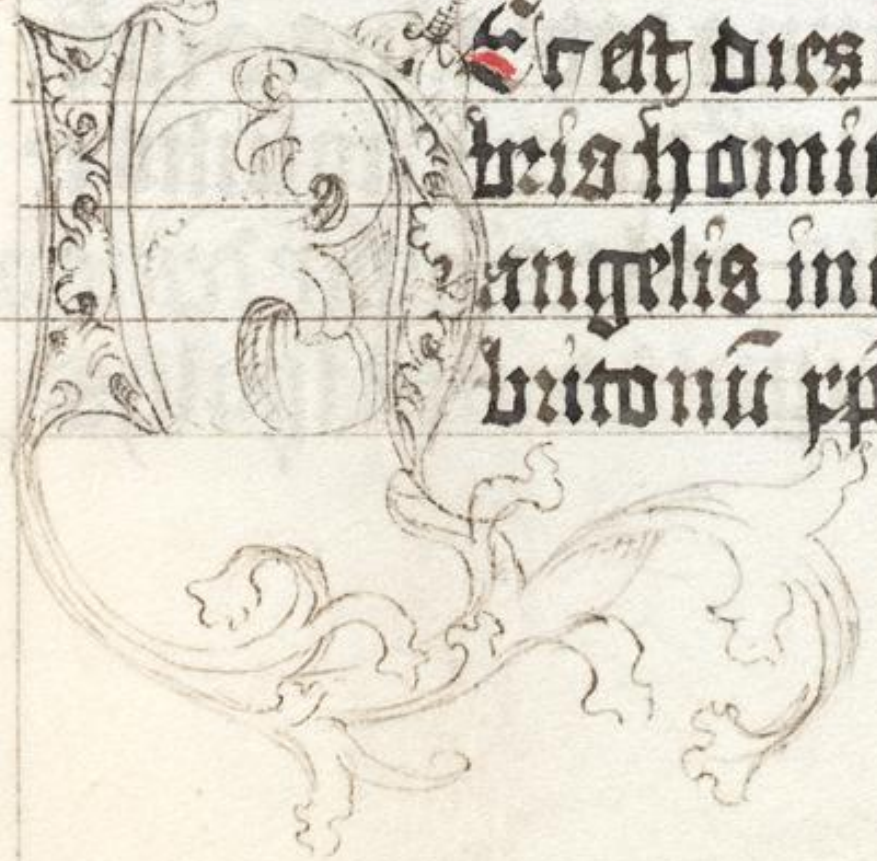 HEc est dies
bris homin
angelis in
britonū xp̄